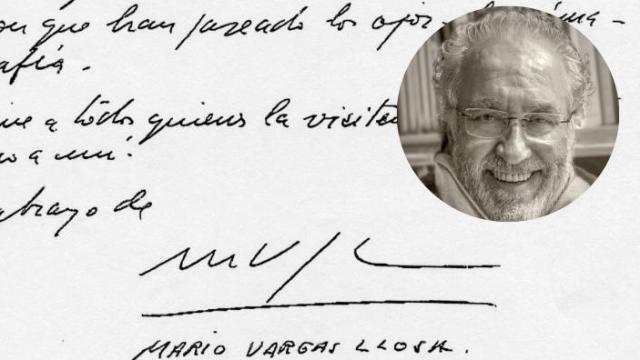 que han paseado los ojos
afía.
ue a todos quienes la visiten
o a mí.
abrazo de
MARIO VARGAS LLOSA.